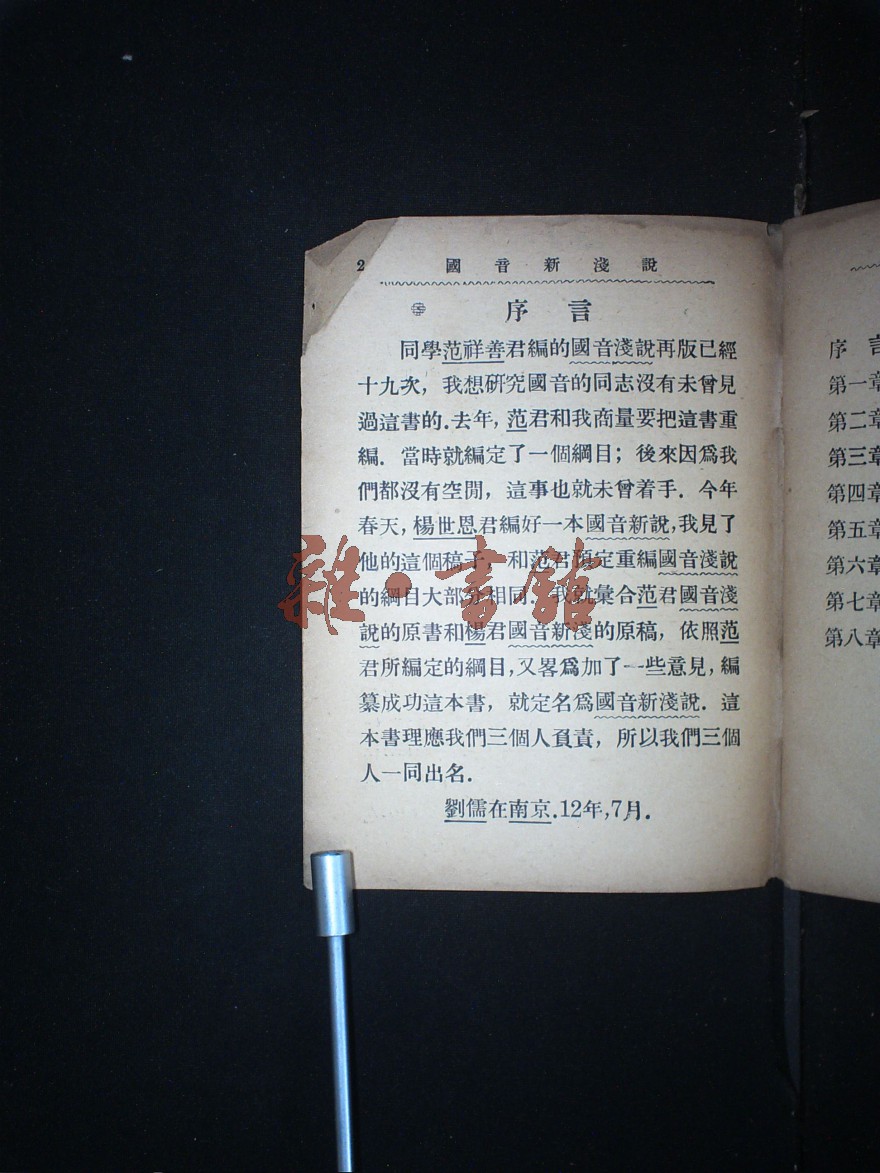 2 國音新淺說
序言
同學范祥善君編的國音淺說再版已經
十九次，我想研究國音的同志沒有未曾見
過這書的．去年，范君和我商量要把這書重
編．當時就編定了一個綱目；後來因爲我
們都沒有空閒，這事也就未曾着手．今年
春天，楊世恩君編好一本國音新說，我見了
他的這個稿子，和范君預定重編國音淺說
的綱目大部分相同．我就彙合范君國音淺
說的原書和楊君國音新淺的原稿，依照范
君所編定的綱目，又畧爲加了一些意見，編
纂成功這本書，就定名爲國音新淺說．這
本書理應我們三個人負責，所以我們三個
人一同出名．
劉儒在南京．12年，7月．
雜·書館
序言
第一章
第二章
第三章
第四章
第五章
第六章
第七章
第八章